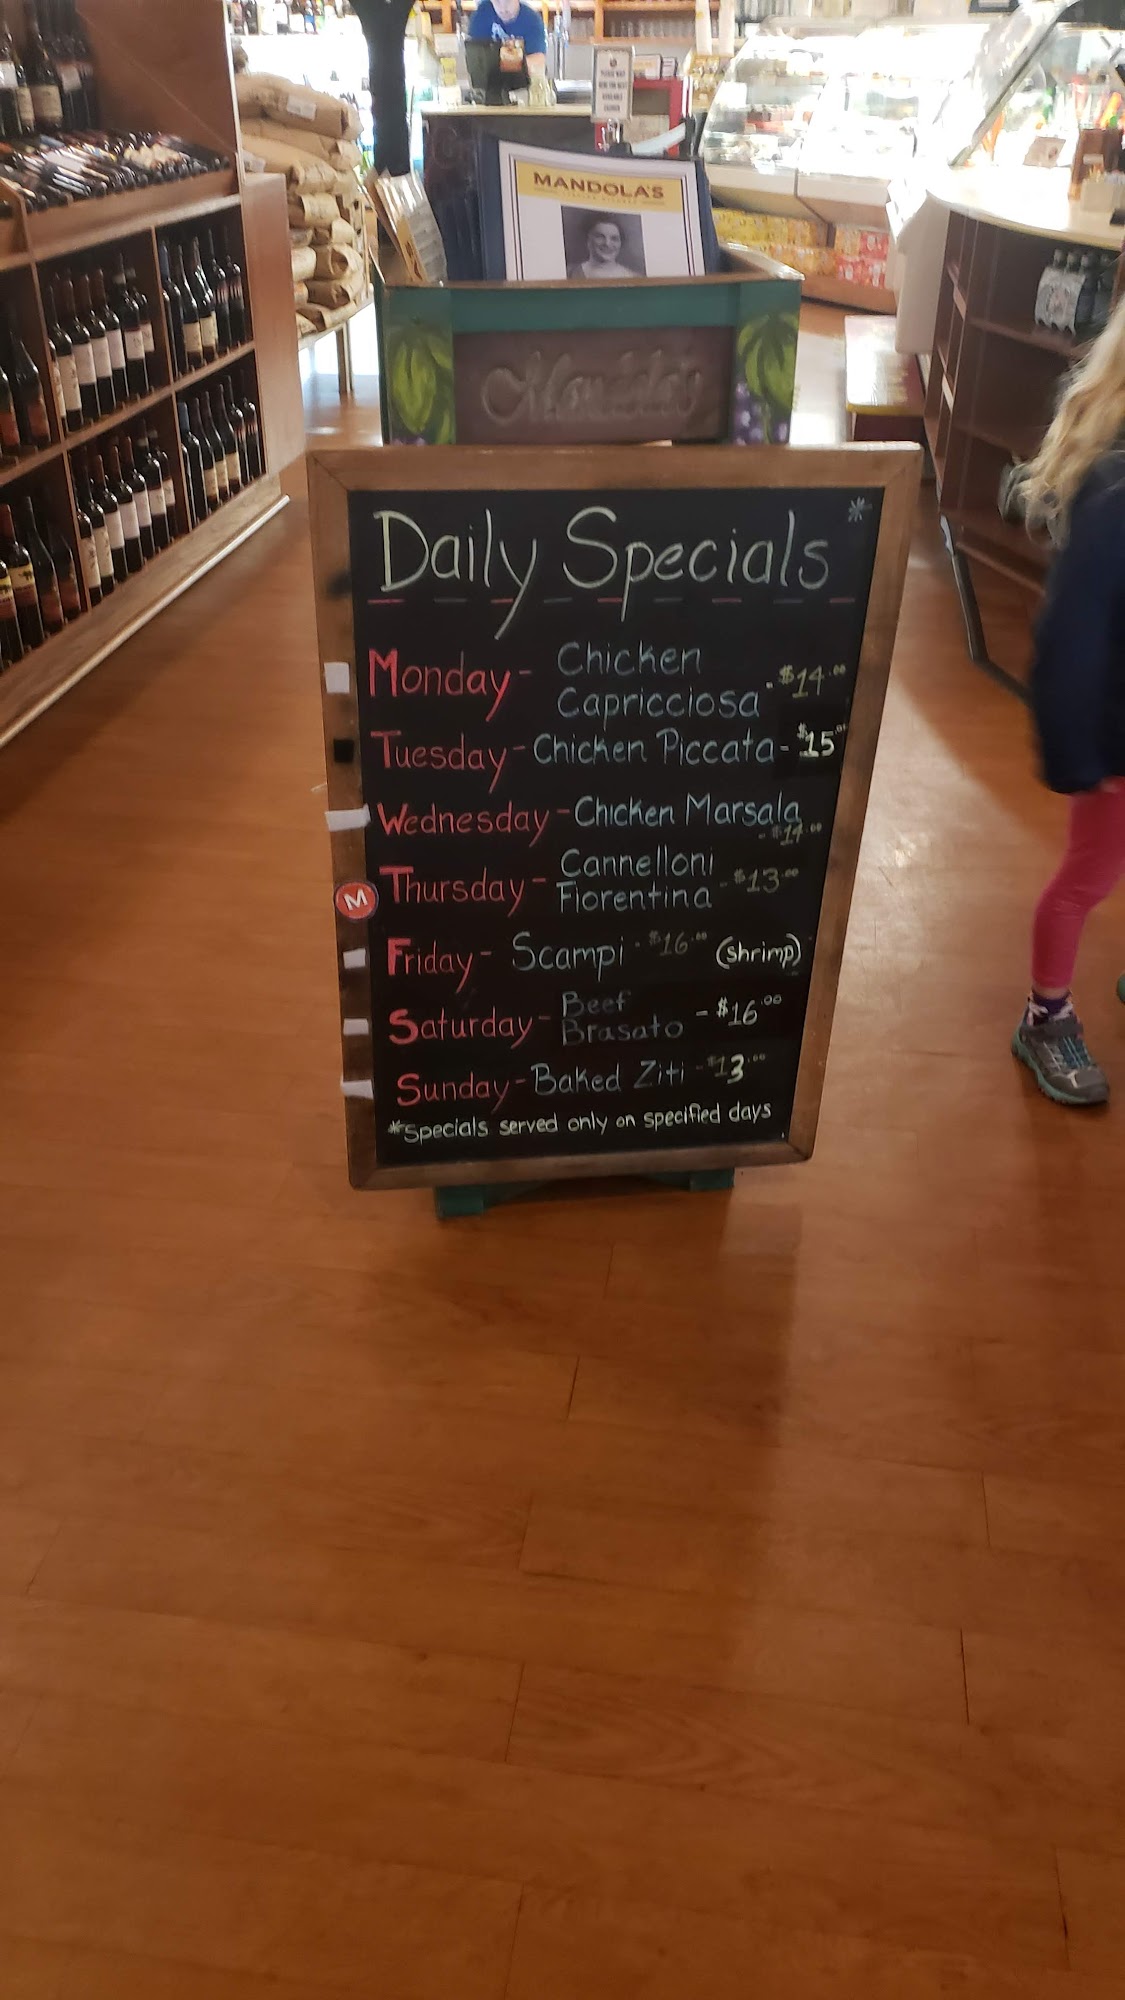 PLEASE WAIT
HERE FOR NEXT
AVAILABLE
CASHIER
MANDOLA'S
Mandola's
Daily Specials *
Monday - Chicken Capricciosa - $14.00
Tuesday - Chicken Piccata - $15.00
Wednesday - Chicken Marsala - $14.00
Thursday - Cannelloni Fiorentina - $13.00
Friday - Scampi - $16.00 (shrimp)
Saturday - Beef Brasato - $16.00
Sunday - Baked Ziti - $13.00
*Specials served only on specified days
M